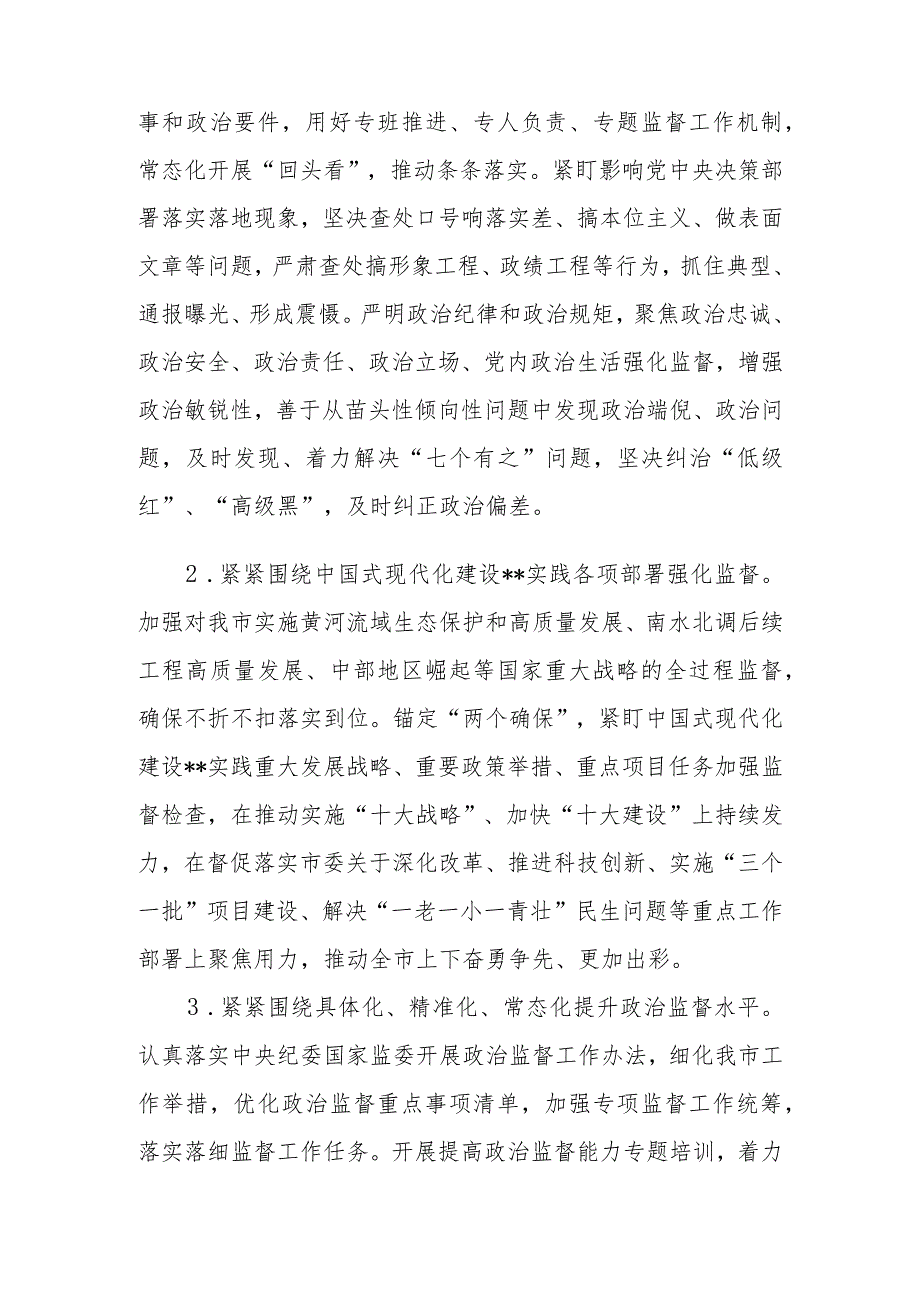 事和政治要件，用好专班推进、专人负责、专题监督工作机制，
常态化开展“回头看”，推动条条落实。紧盯影响党中央决策部
署落实落地现象，坚决查处口号响落实差、搞本位主义、做表面
文章等问题，严肃查处搞形象工程、政绩工程等行为，抓住典型、
通报曝光、形成震慑。严明政治纪律和政治规矩，聚焦政治忠诚、
政治安全、政治责任、政治立场、党内政治生活强化监督，增强
政治敏锐性，善于从苗头性倾向性问题中发现政治端倪、政治问
题，及时发现、着力解决“七个有之”问题，坚决纠治“低级
红”、“高级黑”，及时纠正政治偏差。
2.紧紧围绕中国式现代化建设**实践各项部署强化监督。
加强对我市实施黄河流域生态保护和高质量发展、南水北调后续
工程高质量发展、中部地区崛起等国家重大战略的全过程监督，
确保不折不扣落实到位。锚定“两个确保”，紧盯中国式现代化
建设**实践重大发展战略、重要政策举措、重点项目任务加强监
督检查，在推动实施“十大战略”、加快“十大建设”上持续发
力，在督促落实市委关于深化改革、推进科技创新、实施“三个
一批”项目建设、解决“一老一小一青壮”民生问题等重点工作
部署上聚焦用力，推动全市上下奋勇争先、更加出彩。
3.紧紧围绕具体化、精准化、常态化提升政治监督水平。
认真落实中央纪委国家监委开展政治监督工作办法，细化我市工
作举措，优化政治监督重点事项清单，加强专项监督工作统筹，
落实落细监督工作任务。开展提高政治监督能力专题培训，着力